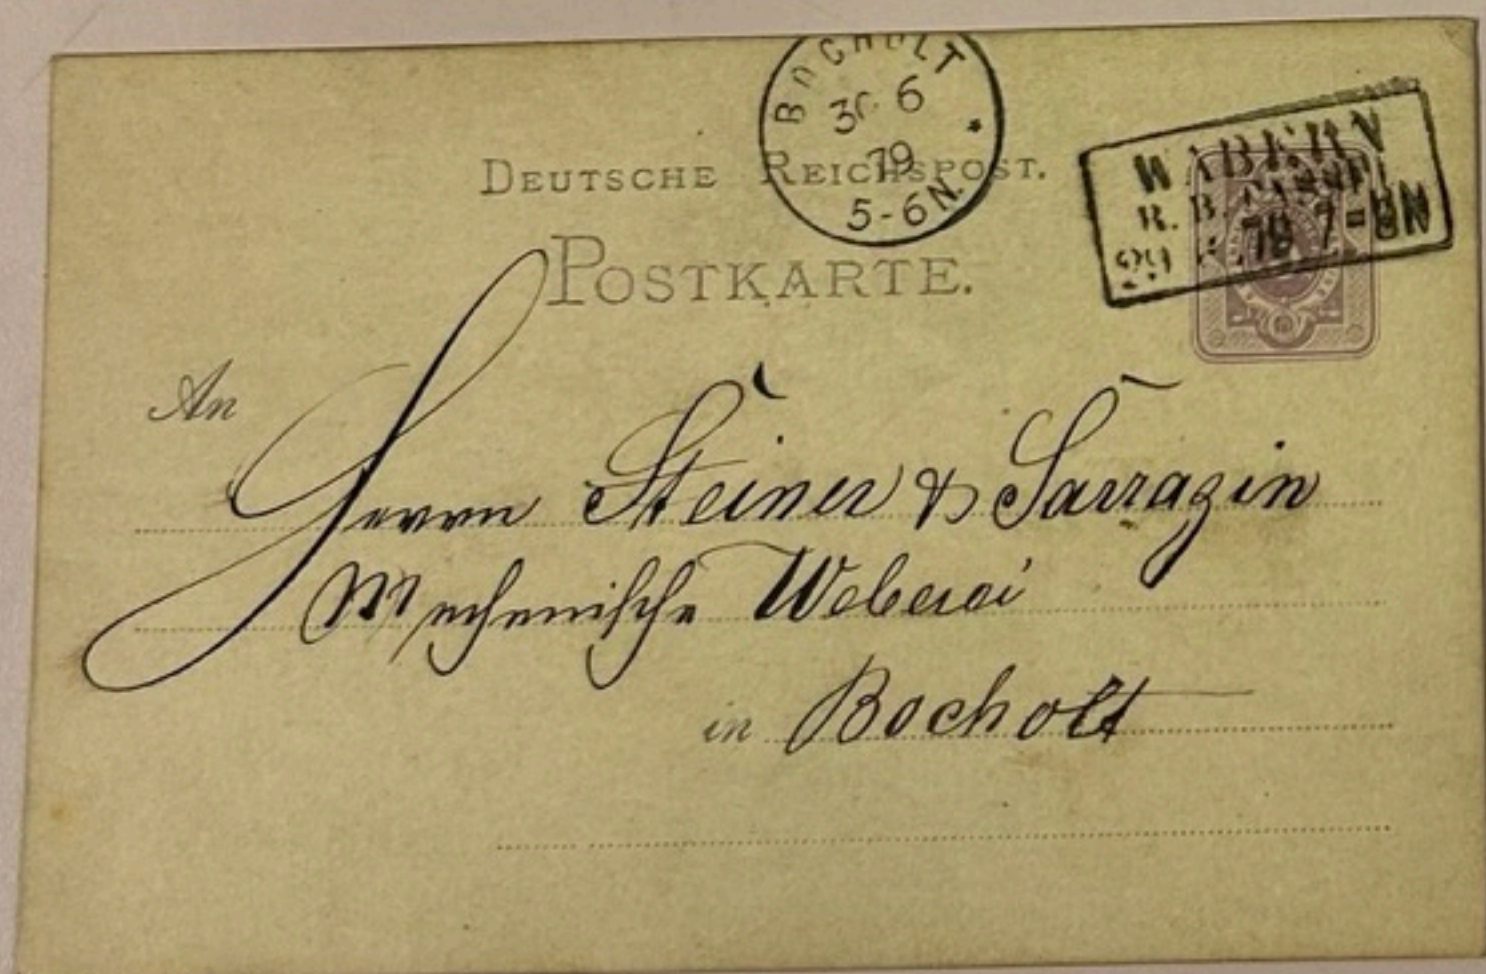 BOCHOLT
30 6
79
5-6N.
WABERN
R. B. CASSEL
29 6. 79 7-8N
DEUTSCHE REICHSPOST.
POSTKARTE.
An
Herrn Steiner & Sarrazin
Mechanische Weberei
in Bocholt